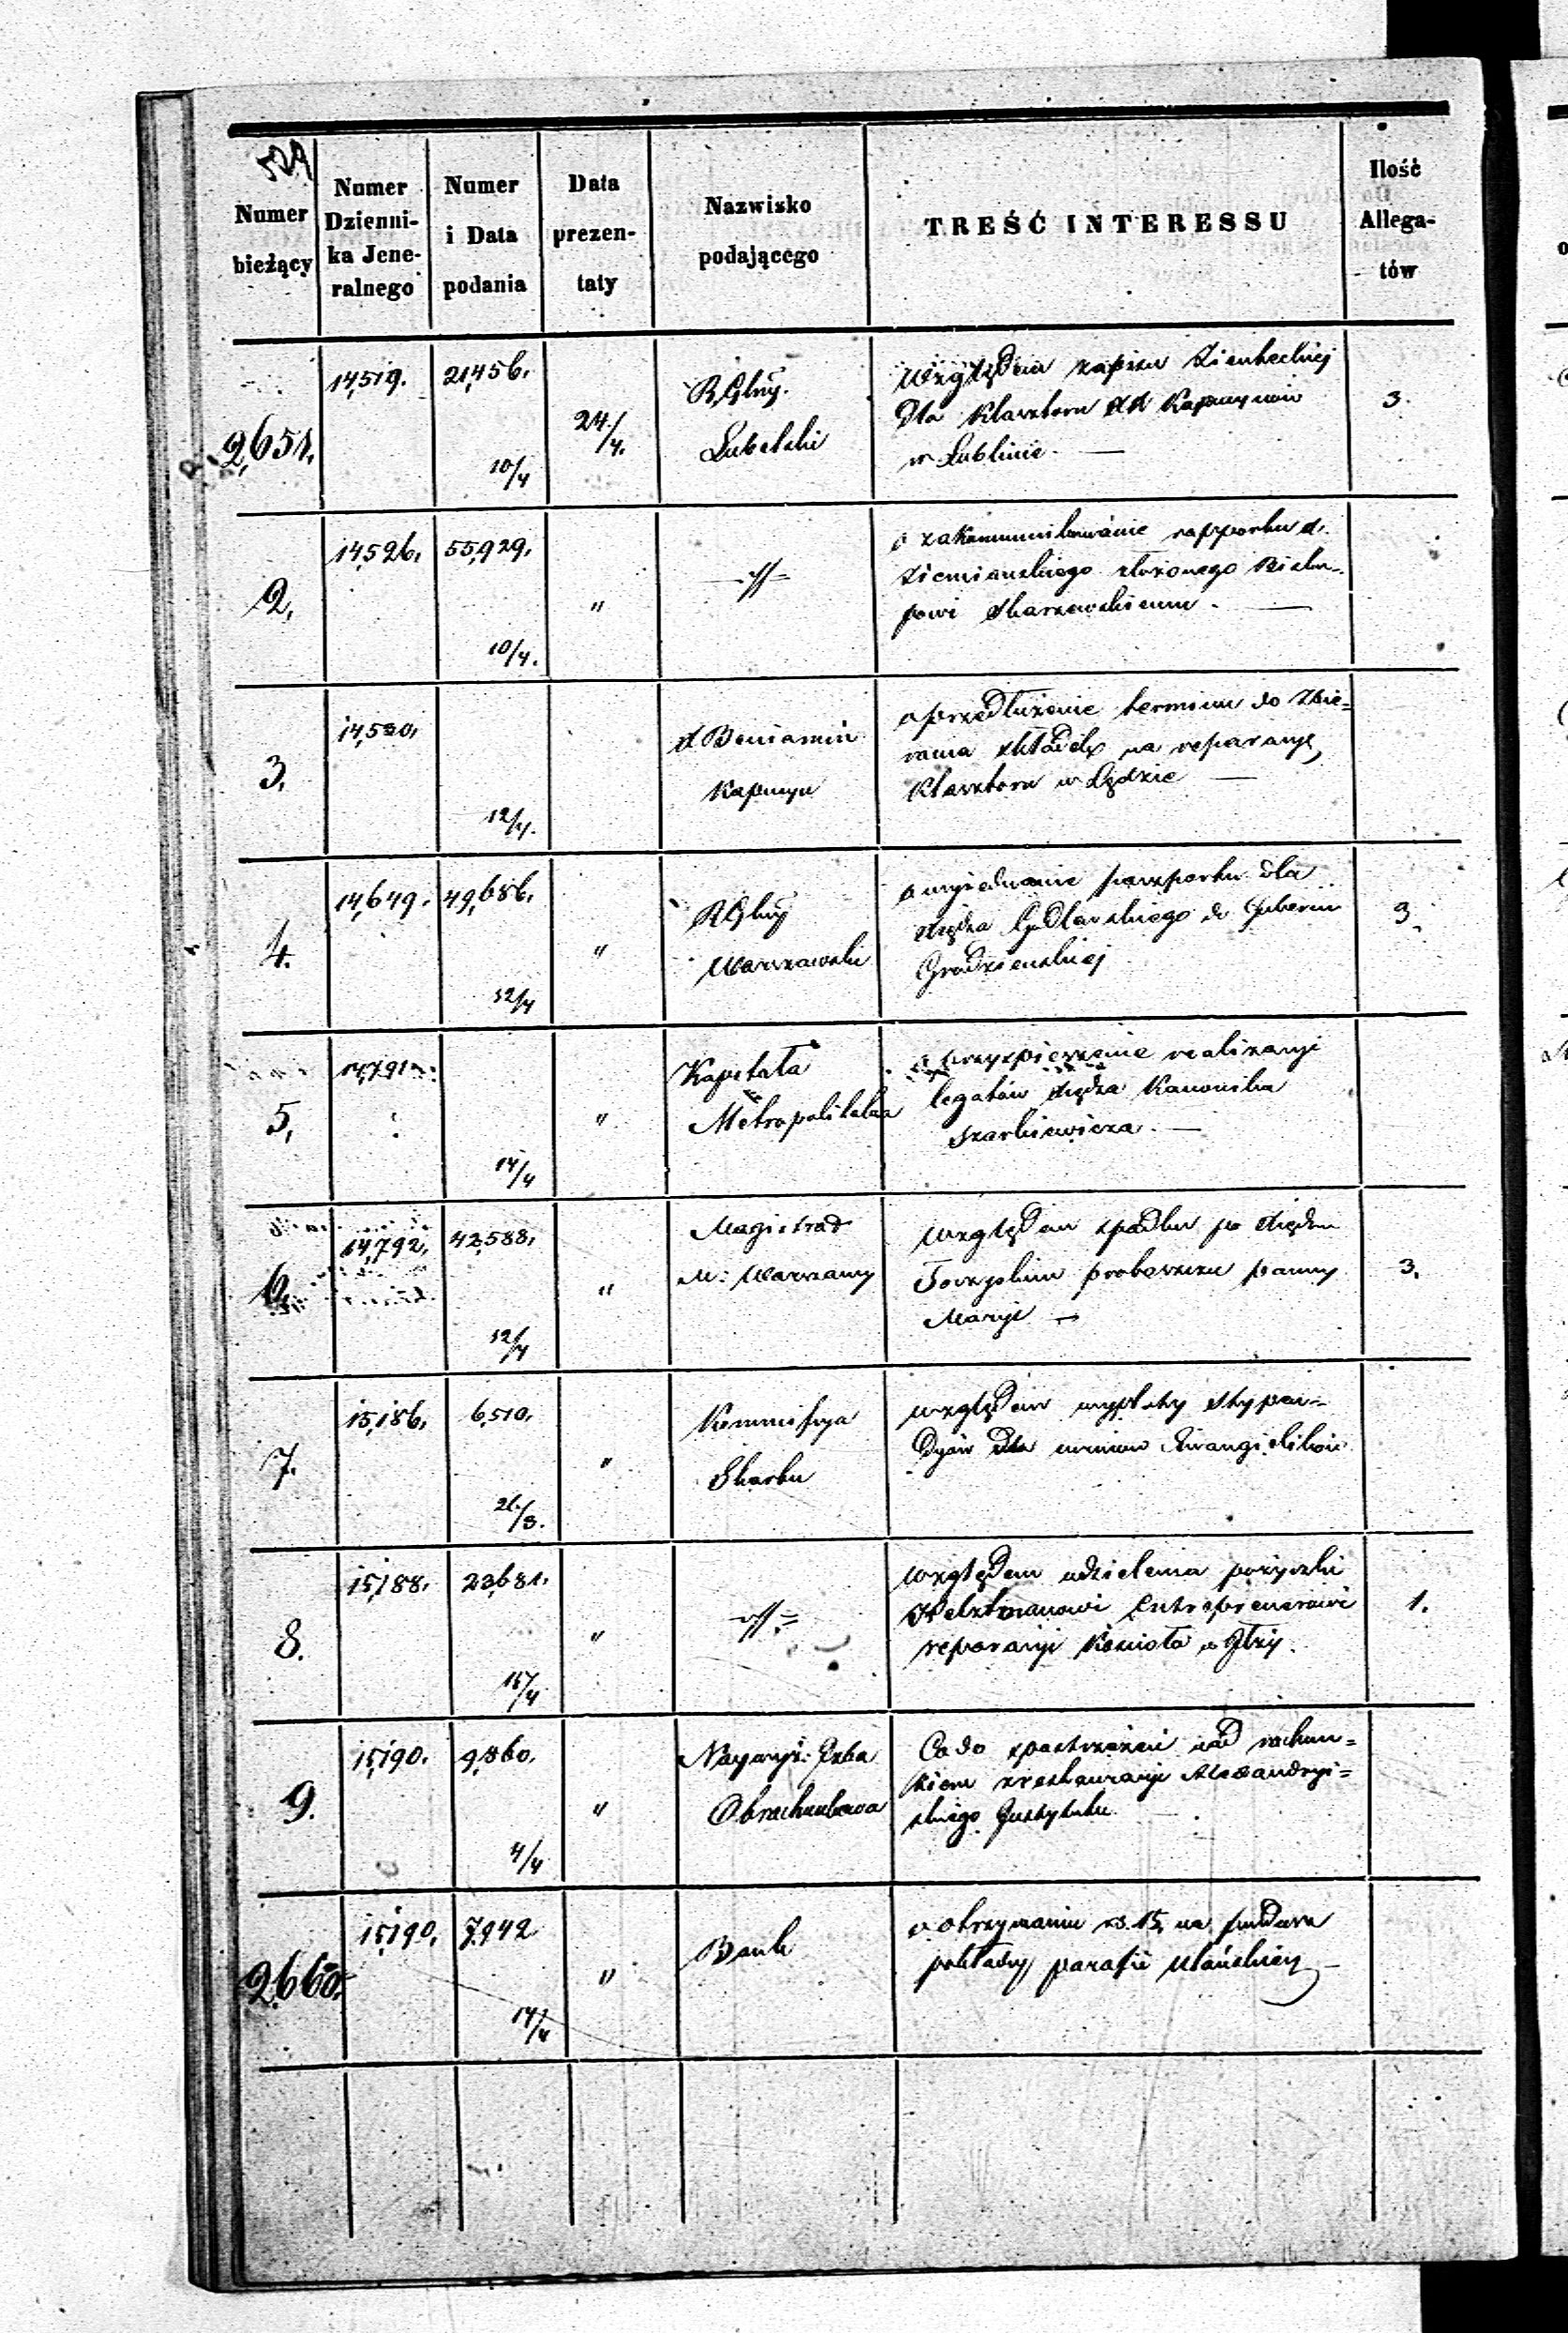 Numer
bieżący
Numer
Dzienni-
ka Jene-
ralnego
Numer
i Data
podania
Data
prezen-
taty
Nazwisko
podającego
TREŚĆ INTERESSU
Ilość
Allega-
tów
2,651.
14,519.
21,456.
10/4
24/4.
R. Gbny
Lubelski
Względem zapisu
dla Klasztoru XX Kapucynów
w Lublinie. —
3.
2.
14,526.
55,929.
10/4.
"
—//—
o zakommunikowanie rapportu X.
Ziemiańskiego złożonego Bisku-
powi Skarszewskiemu. —
3.
14,530.
12/4.
X Beniamin
Kapucyn
o przedłużenie terminu do zbie=
rania składek na reparacyę
Klasztoru w Lędzie —
4.
14,649.
49,686.
12/4
"
R. Gbny
Warszawski
o wyjednanie paszportu dla
Xiędza do Gubernii
Grodzieńskiej
3.
5.
14,791.
14/4
"
Kapituła
Metropolitalna
o przyspieszenie realizacyi
legatów Xiędza Kanonika
Szarkiewicza. —
6.
14,792.
42,588.
12/4
"
Magistrat
M: Warszawy
względem spadku po Xiędzu
proboszczu panny
Maryi —
3.
7.
15,186.
6,510.
26/3.
"
Kommissya
Skarbu
względem wypłaty stypen-
dyów dla uczniów Ewangielików
8.
15,188.
23,681.
15/4
"
—//—
względem udzielenia pożyczki
Entreprenerowi
reparacyi Kościoła w Iłży.
1.
9.
15,190.
9,860.
4/4
"
Naywyż: Izba
Obrachunkowa
Co do spostrzeżeń nad rachun=
kiem z restauracyi Alexandryi=
skiego Instytutu
2,660.
15,190.
7,942
14/4
"
Bank
o otrzymaniu rs. 15, na fundusz
pokładny parafii Ułańskiey —